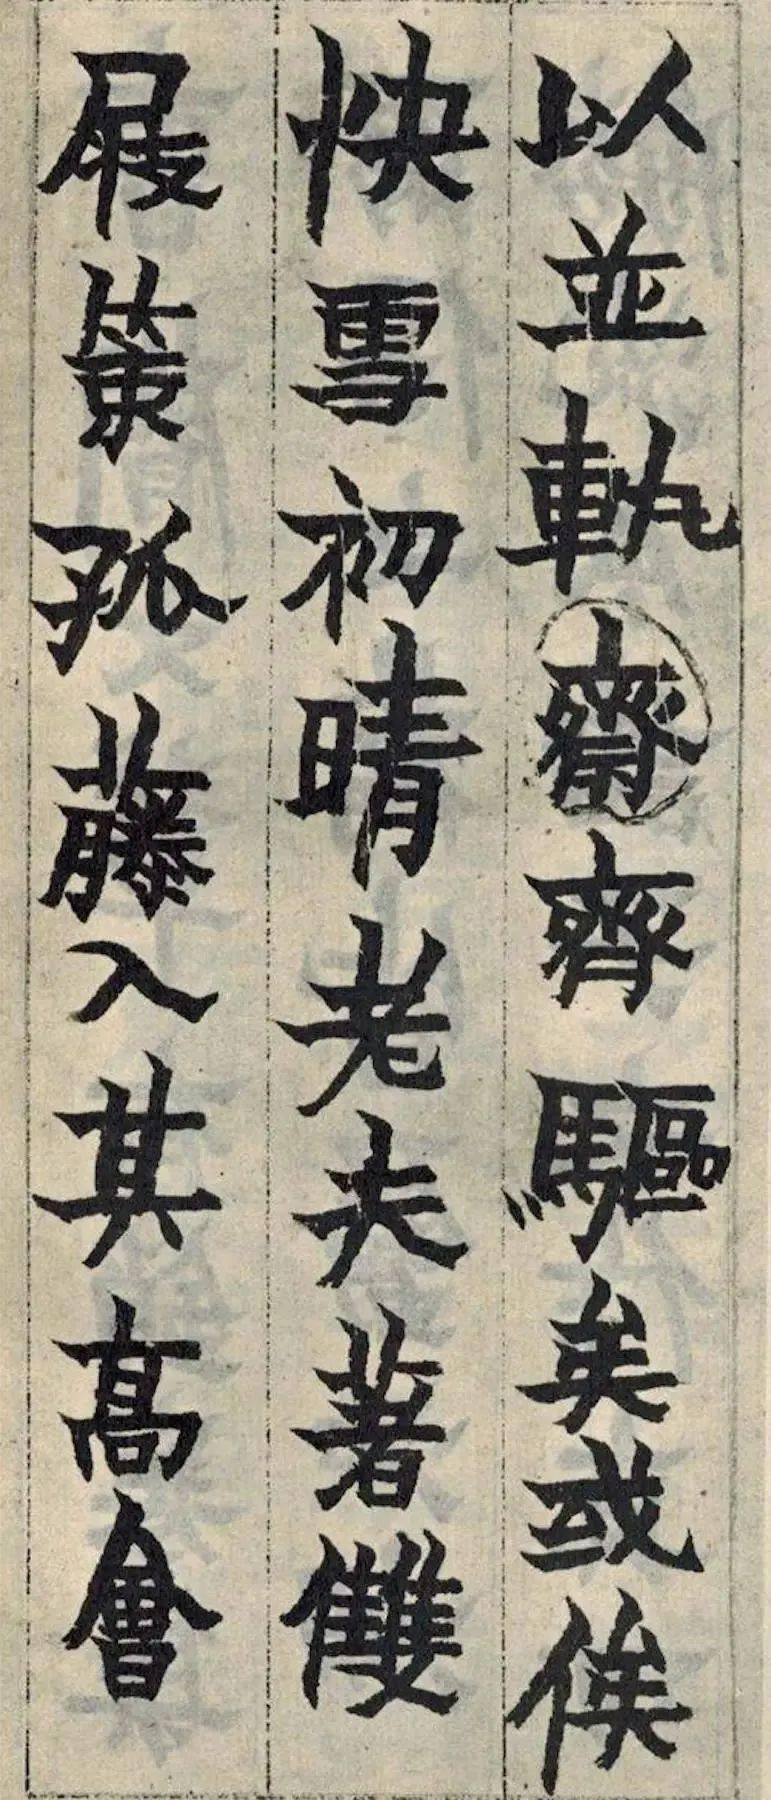 以並軌齋齊驅矣或俟
快雪初晴老夫著雙
屐策孤藤入其高會